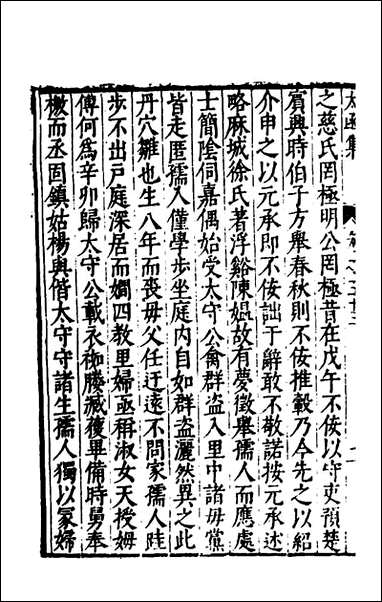 太函集
之慈氏罔極明公罔極昔在戊午不佞以守吏預楚
賓興時伯子方舉春秋則不佞推轂乃今先之以紹
介申之以元承即不佞詘于辭敢不敬諾按元承述
略麻城徐氏著浮谿陳媪故有夢徵舉孺人而應處
士簡陰伺嘉偶始受太守公禽群盜入里中諸毋黨
皆走匿孺人僅學步坐庭內自如群盜灑然異之此
丹穴雛也生八年而喪毋父任迂遠不問家孺人跬
步不出戶庭深居而嫺四教里婦亟稱淑女天授姆
傅何為辛卯歸太守公載衣桺賸臧獲畢備時舅奉
檄而丞固鎮姑楊輿偕太守守諸生孺人獨以冢婦